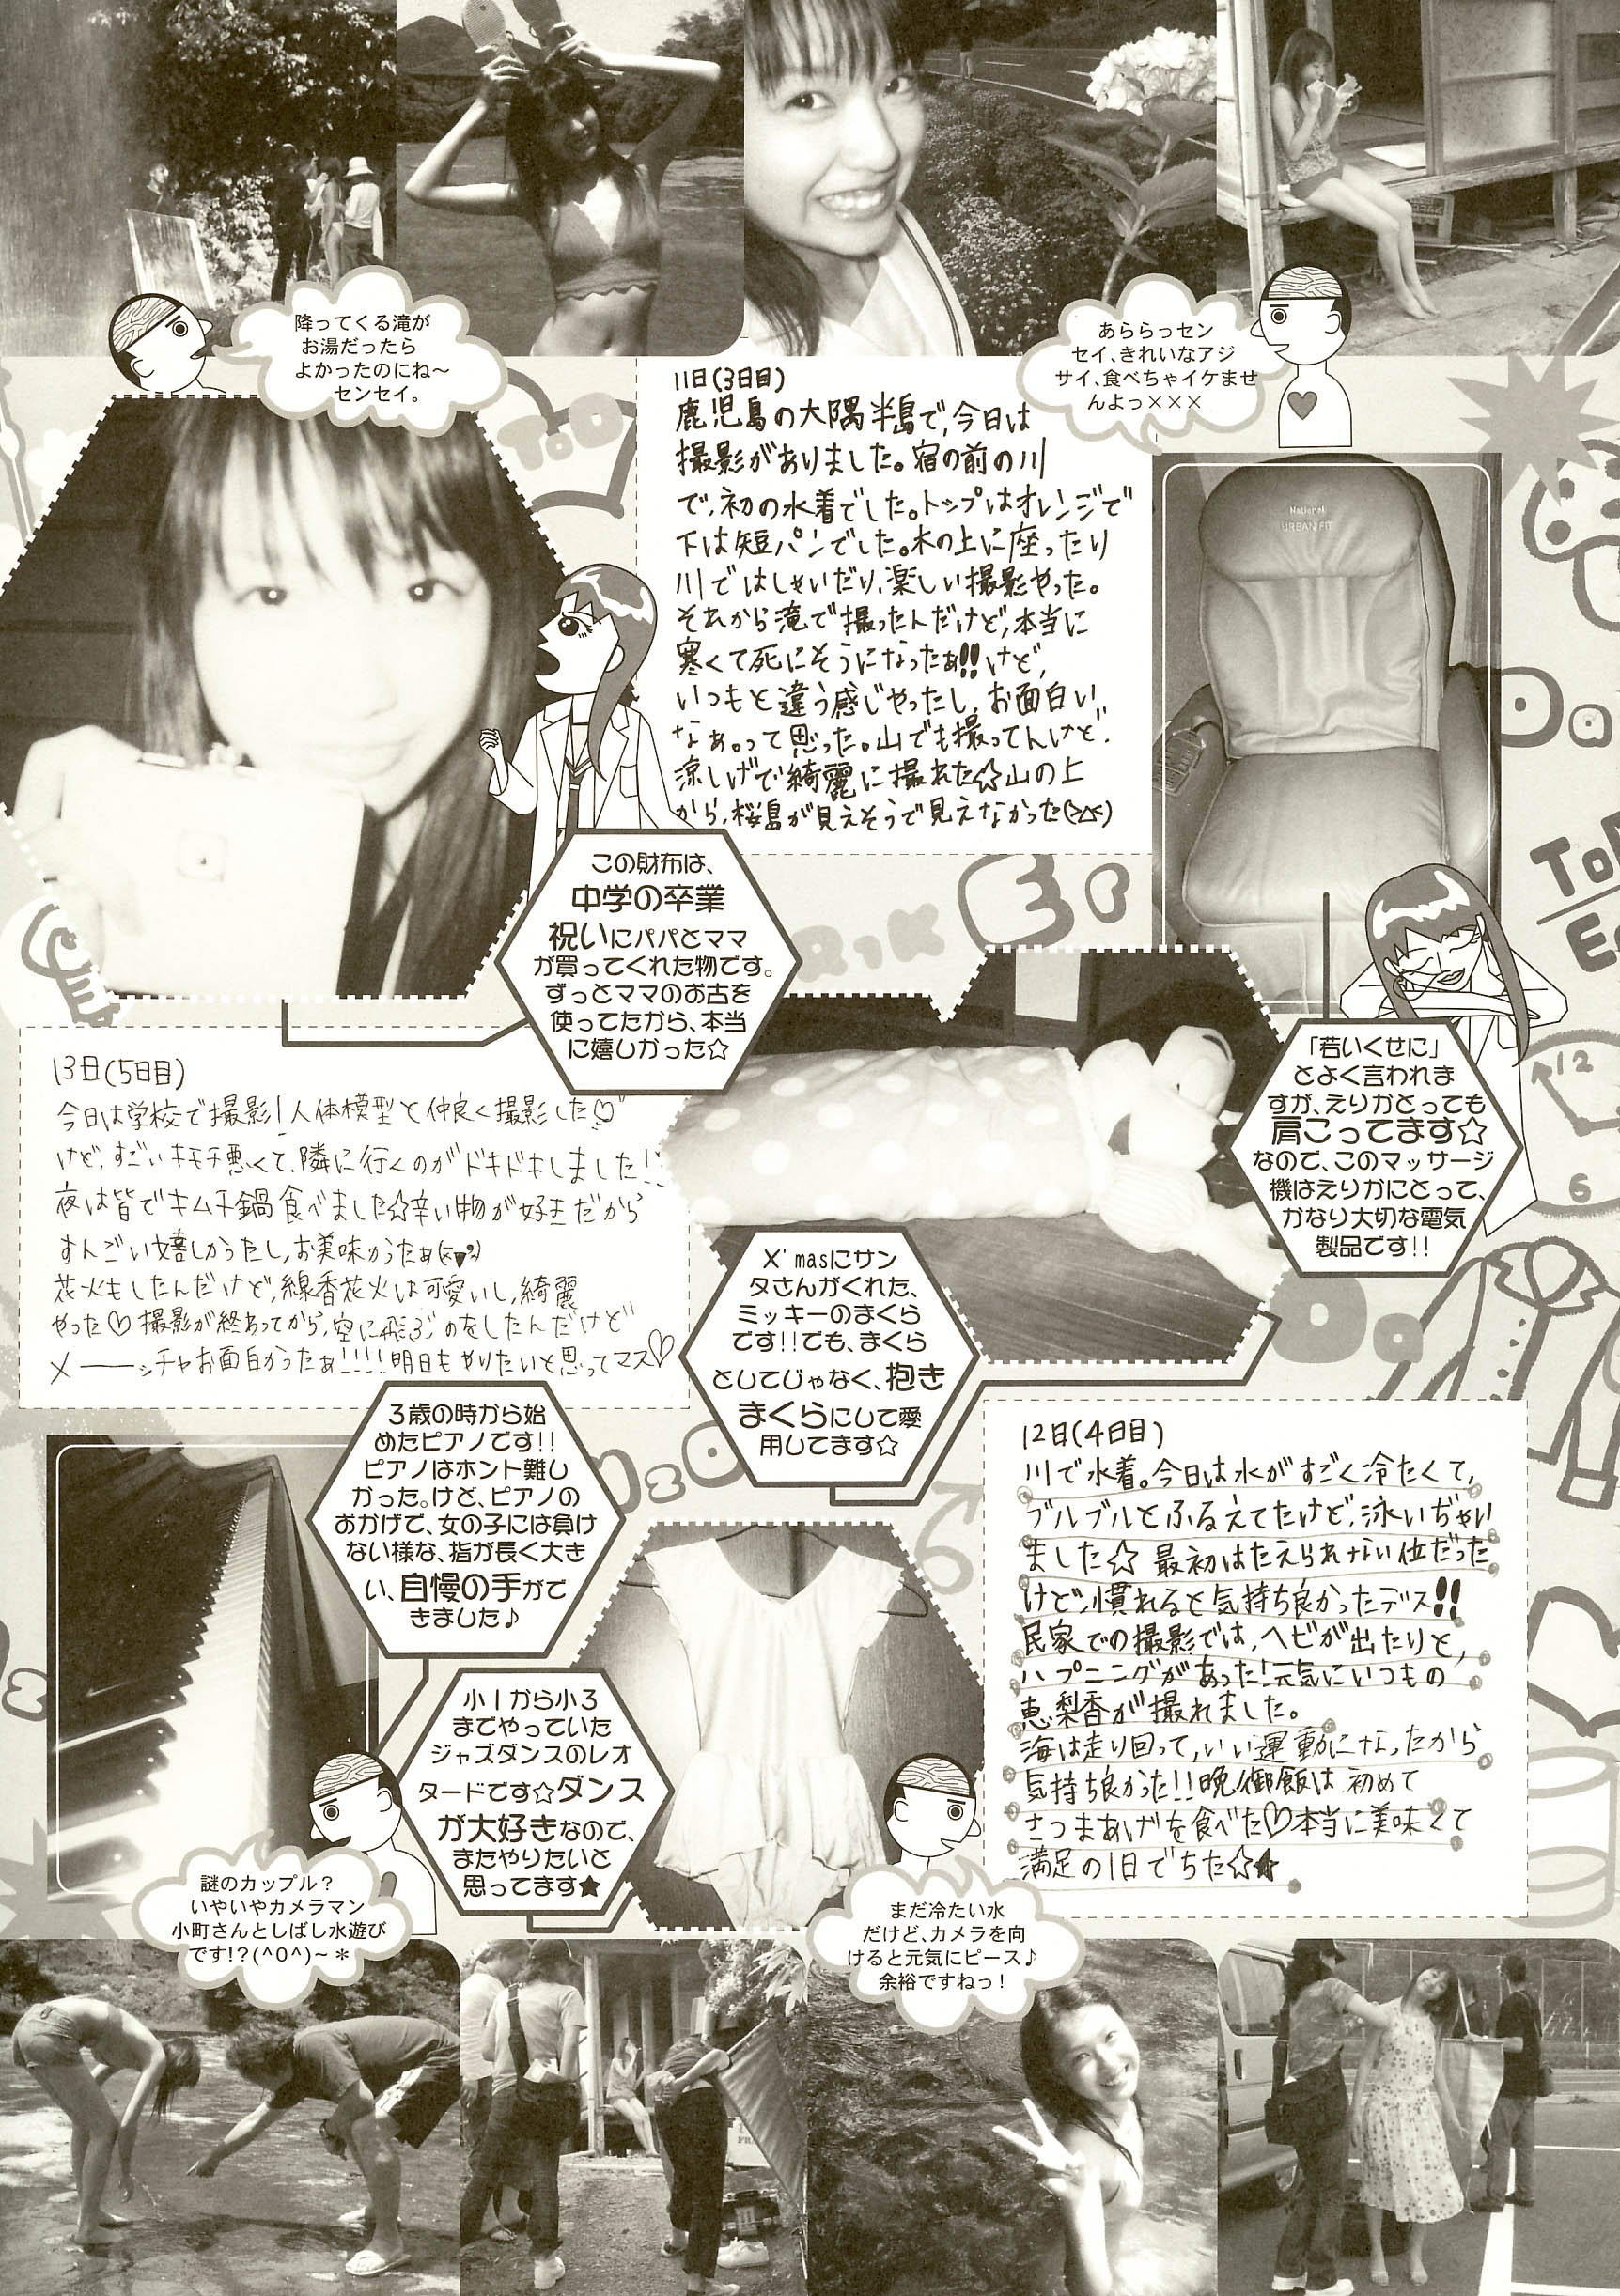 降ってくる滝が
お湯だったら
よかったのにね～
センセイ。
あららっセン
セイ、きれいなアジ
サイ、食べちゃイケませ
んよっ×××
11日(3日目)
鹿児島の大隅半島で、今日は
撮影がありました。宿の前の川
で、初の水着でした。トップはオレンジで
下は短パンでした。木の上に座ったり
川ではしゃいだり、楽しい撮影やった。
それから滝で撮ったんだけど、本当に
寒くて死にそうになったぁ!!けど、
いつもと違う感じやったし、お面白い
なぁ。って思った。山でも撮ってんけど、
涼しげで綺麗に撮れた☆山の上
から、桜島が見えそうで見えなかった(>△<)
National
URBAN FIT
この財布は、
中学の卒業
祝いにパパとママ
が買ってくれた物です。
ずっとママのお古を
使ってたから、本当
に嬉しかった☆
「若いくせに」
とよく言われま
すが、えりかとっても
肩こってます☆
なので、このマッサージ
機はえりかにとって、
かなり大切な電気
製品です!!
13日(5日目)
今日は学校で撮影!人体模型と仲良く撮影した♡
けど、すごいキモチ悪くて、隣に行くのがドキドキしました!!
夜は皆でキムチ鍋食べました☆辛い物が好きだから
すんごい嬉しかったし、お美味かったぁ
花火もしたんだけど、線香花火は可愛いし、綺麗
やった♡撮影が終わってから、空に飛ぶのをしたんだけど
メーーッチャお面白かったぁ!!!!明日もやりたいと思ってマス♡
X'masにサン
タさんがくれた、
ミッキーのまくら
です!!でも、まくら
としてじゃなく、抱き
まくらにして愛
用してます☆
3歳の時から始
めたピアノです!!
ピアノはホント難し
かった。けど、ピアノの
おかげで、女の子には負け
ない様な、指が長く大き
い、自慢の手がで
きました♪
12日(4日目)
川で水着。今日は水がすごく冷たくて、
ブルブルとふるえてたけど、泳いぢゃい
ました☆ 最初はたえられない位だった
けど、慣れると気持ち良かったデス!!
民家での撮影では、ヘビが出たりと、
ハプニングがあった!元気にいつもの
恵梨香が撮れました。
海は走り回って、いい運動になったから
気持ち良かった!!晩御飯は初めて
さつまあげを食べた♡本当に美味くて
満足の1日でちた☆★
小1から小3
までやっていた
ジャズダンスのレオ
タードです☆ダンス
が大好きなので、
またやりたいと
思ってます★
謎のカップル?
いやいやカメラマン
小町さんとしばし水遊び
です!?(^O^)~＊
まだ冷たい水
だけど、カメラを向
けると元気にピース♪
余裕ですねっ!